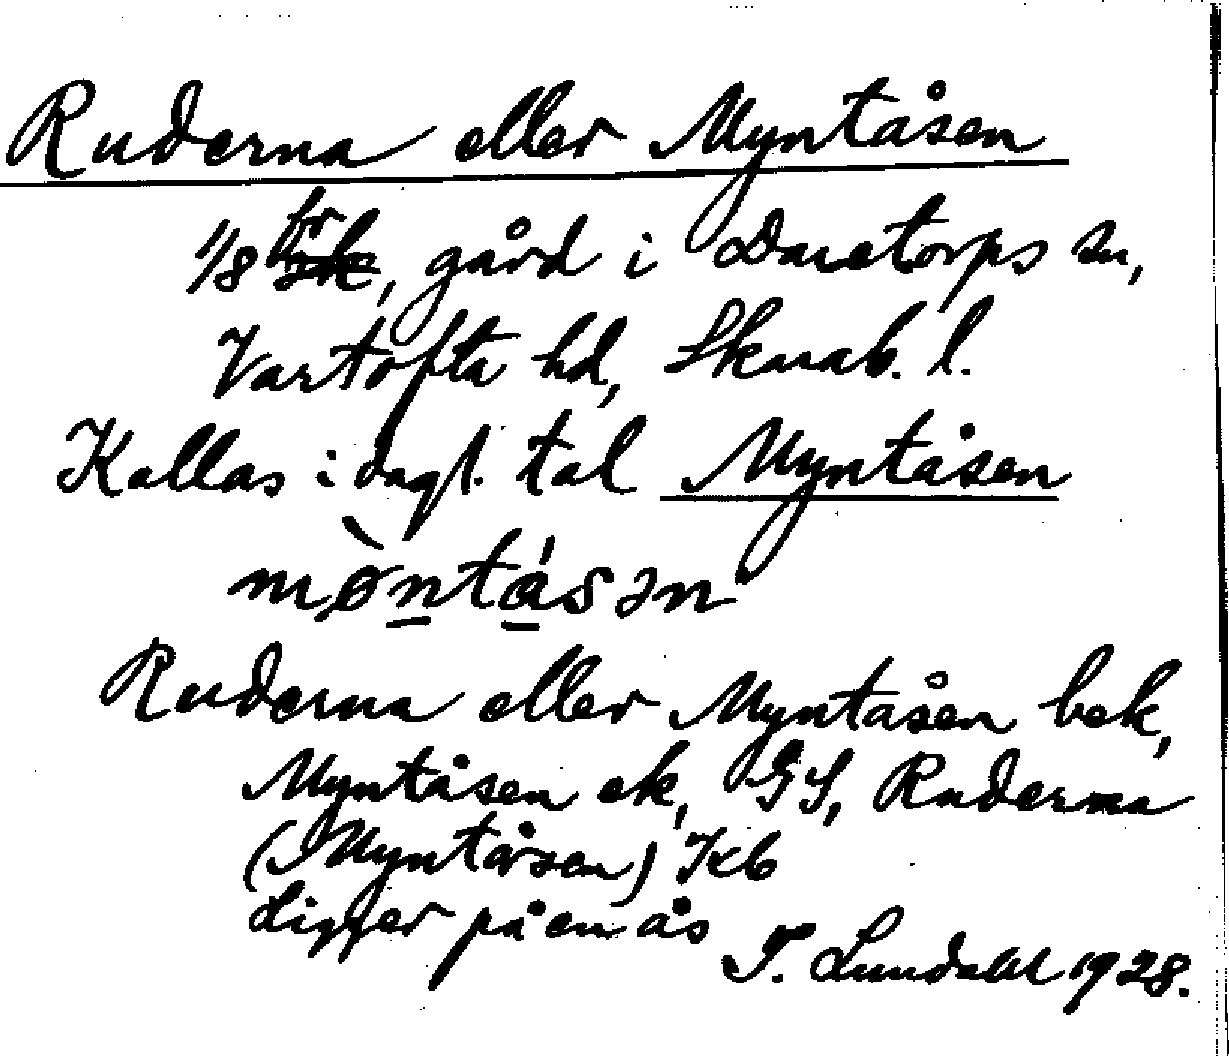 Ruderna eller Myntåsen
1/8 fr, gård i Daretorps sn,
Vartofta hd, Skarab. l.
Kallas i dagl. tal Myntåsen
mø̀ntásən
Ruderna eller Myntåsen bek,
Myntåsen ek, GS, Ruderna
(Myntåsen) Kb
Ligger på en ås
T. Lundahl 1928.